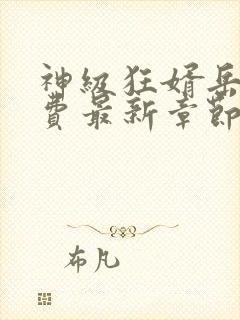 神級狂婿岳
費最新章節
布凡